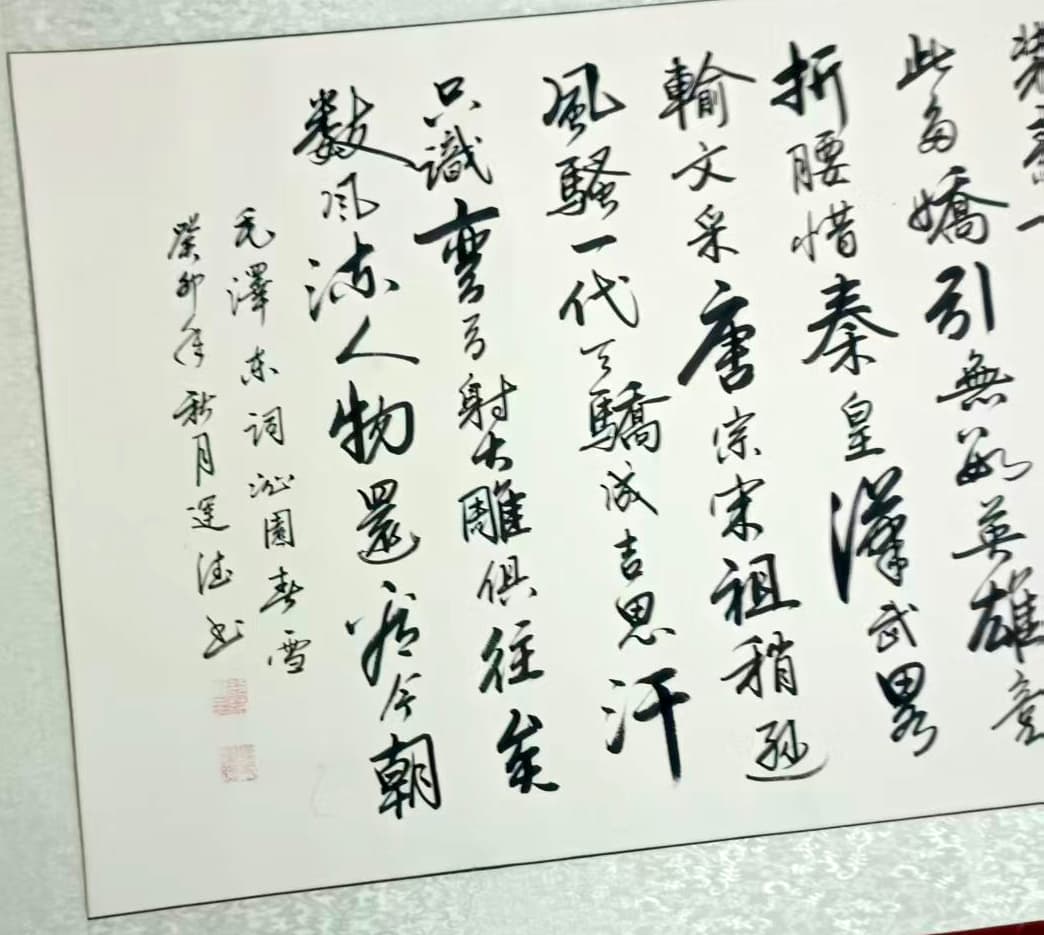 此多嬌引無數英雄竞
折腰惜秦皇漢武畧
輸文采唐宗宋祖稍遜
風騷一代天驕成吉思汗
只識彎弓射大雕俱往矣
数風流人物還看今朝
毛澤东詞沁園春雪
癸卯年秋月运书